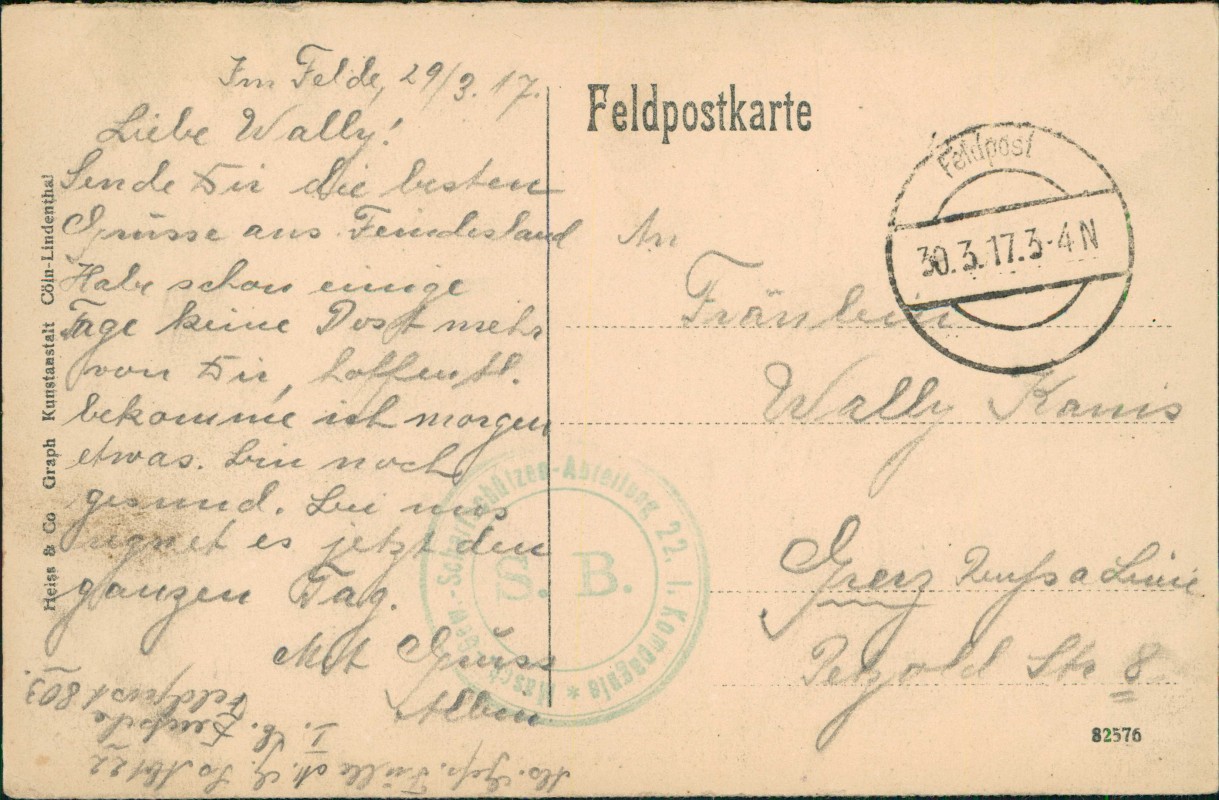 Im Felde, 29/3. 17.
Liebe Wally!
Sende Dir die besten
Grüsse aus Feindesland
Habe schon einige
Tage keine Post mehr
von Dir, hoffentl.
bekomme ich morgen
etwas. Bin noch
gesund. Bei uns
regnet es jetzt den
ganzen Tag.
Mit Gruss
Feldpost 803.
Heiss & Co Graph Kunstanstalt Cöln-Lindenthal
Feldpostkarte
Feldpost
30.3.17.3-4N
An
Fräulein
Wally
Greiz Reuss a Linie
Petzold Str 8
Masch.-Gew.-Scharfschützen-Abteilung 22. 1. Kompagnie *
S. B.
82576